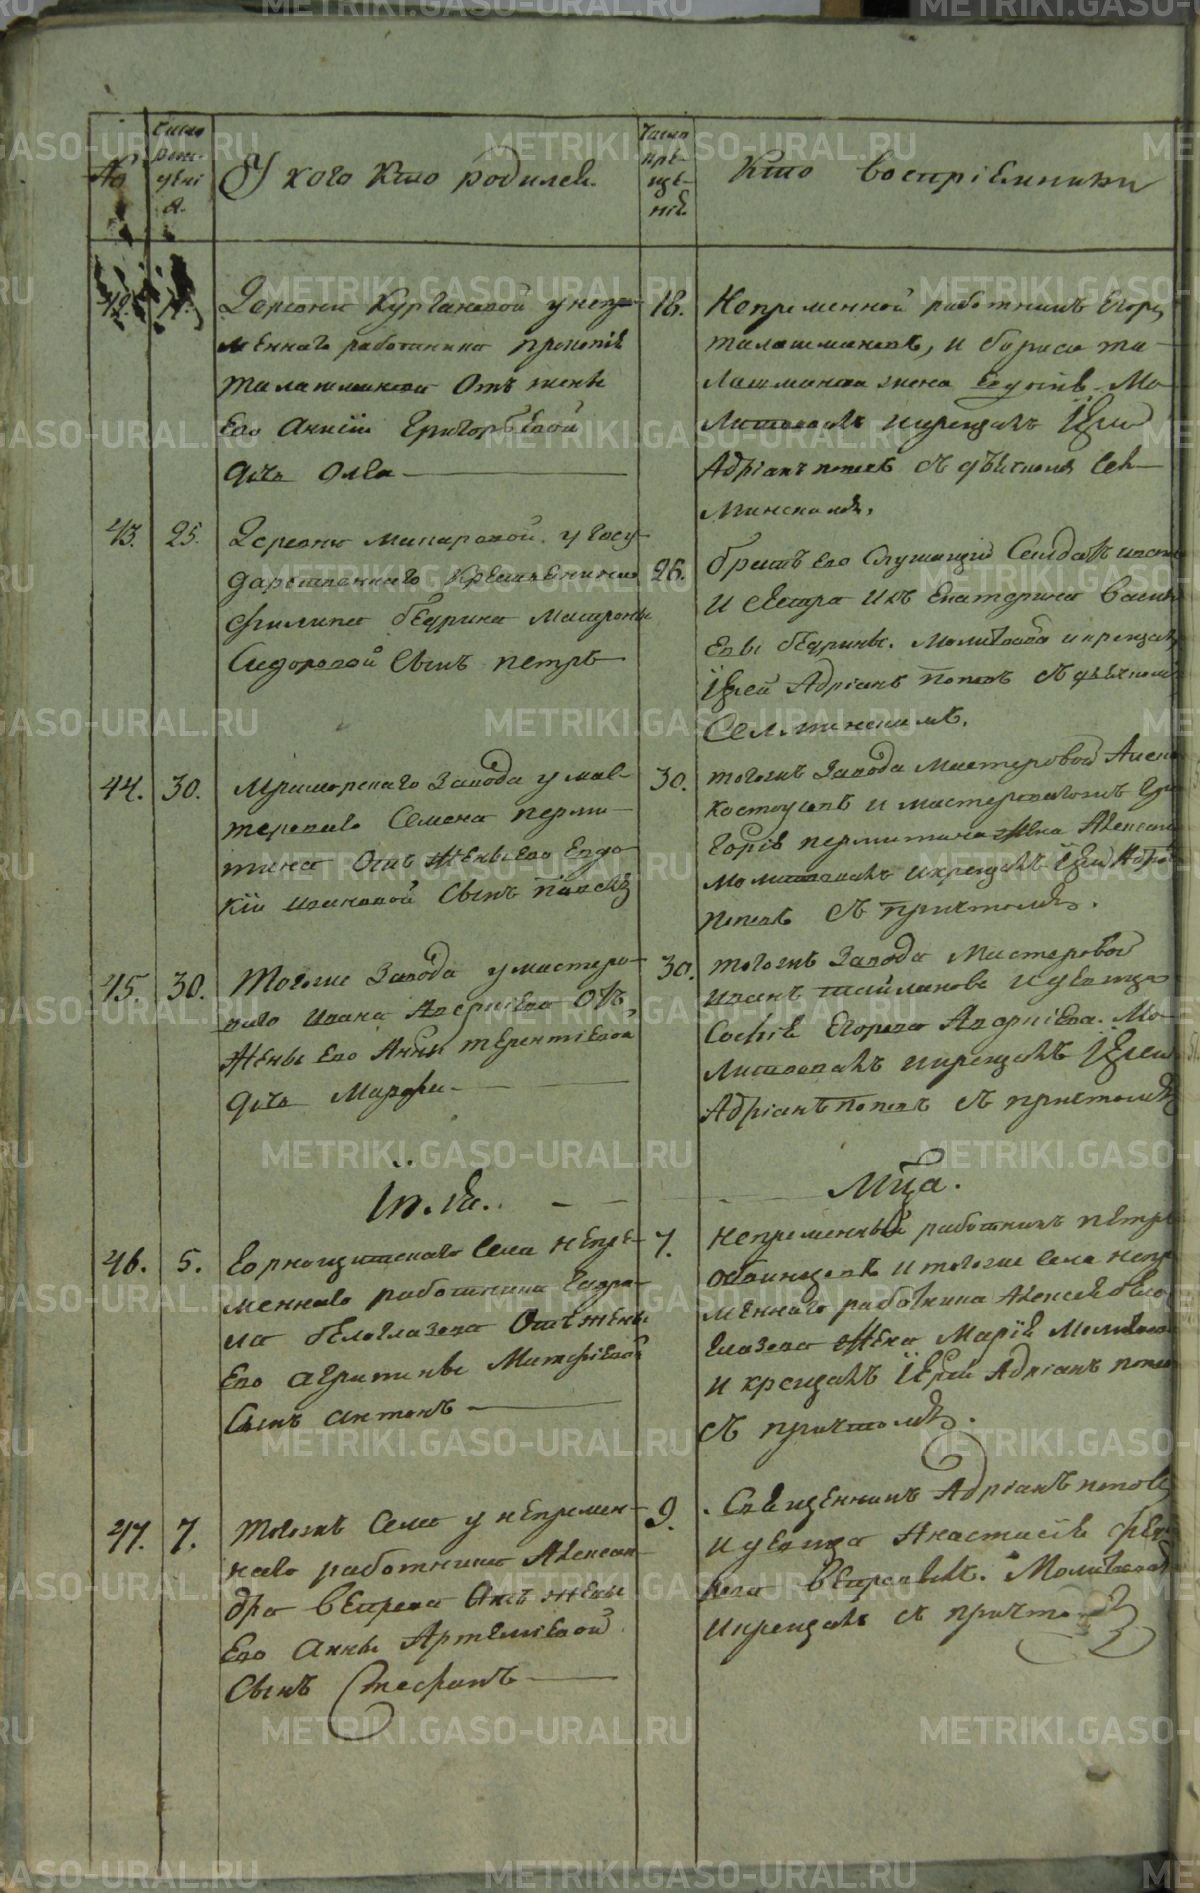 №
число рож-
дені
я.
У кого кто родился.
число
кре-
ще-
нія.
Кто воспріемники
42.
Деревни Кургановой у непре-
меннаго работника Прокопія
Талашманова отъ жены
его Анніи Григорьевой
дочь Олга
18.
Непременной работникъ Егоръ
Талашмановъ, и бориса та-
лашманова жена Мо-
литвовалъ и крещалъ Іерей
Адріанъ поповъ съ дьячкомъ Сел-
минскимъ.
43. 25.
Деревни Макаровой у госу-
дарственнаго крестьянина
филипа бедрина Матроны
Сидоровой сынъ петръ
26.
братъ его Служащій Солдатъ
и сестра ихъ Екатерина Василь
евы бедрины. молитвовалъ и крещалъ
Іерей Адріанъ поповъ съ дьячкомъ
Селминскимъ.
44. 30.
Мраморскаго Завода у мас-
тероваго Семена перми-
тина отъ жены его Евдо-
кіи ивановой сынъ павелъ
30.
тогожъ Завода Мастеровой
Костоусовъ и мастероваго
Егорія пермитина жена
молитвовалъ и крещалъ Іерей
поповъ съ причтомъ.
45. 30.
Тогоже Завода у мастеро-
ваго ивана Авернiева отъ
жены его Анны терентіевой
дочь Марфа
30.
тогожъ Завода Мастеровой
иванъ и девица
Софія Егорова Аверніева. Мо-
литвовалъ и крещалъ Іерей
Адріанъ поповъ съ причтомъ
Іюля.
Мца.
46. 5.
Горнощитскаго села непре-
меннаго работника Гавра-
ла белоглазова отъ жены
его агрипины Матфіевой
сынъ антонъ
7.
непременный работникъ петръ
и тогоже села непре
меннаго работника Алексея бело
глазова жена Марія молитвовалъ
и крещалъ Іерей Адріанъ поповъ
съ причтомъ.
47. 7.
тогожъ села у непремен-
наго работника Алексан-
дра вепрева отъ жены
его анны Артеміевой
сынъ Стефанъ
9.
Священникъ Адріанъ поповъ
и девица Анастасія
Молитвовалъ
и крещалъ съ причтомъ